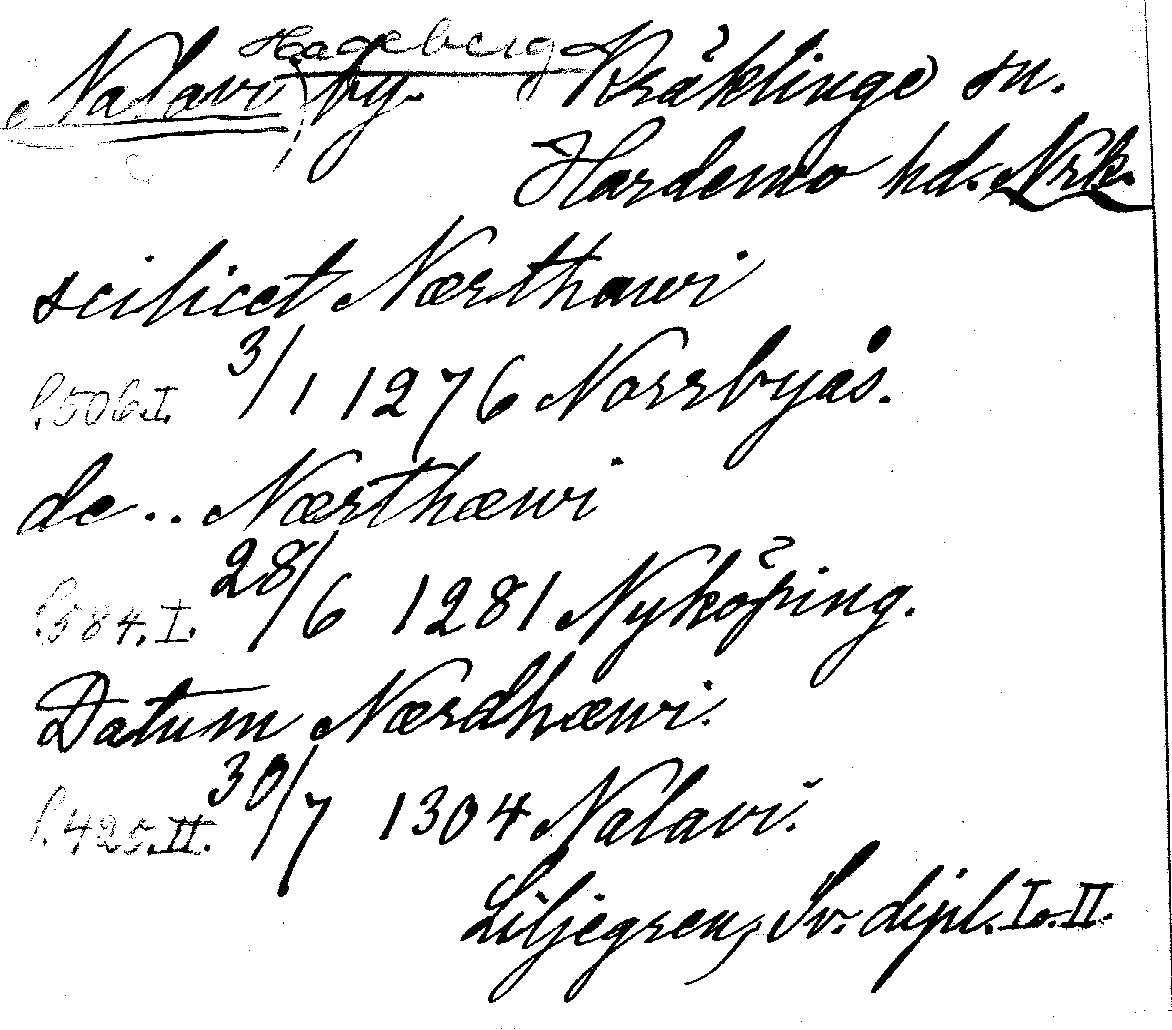 Hageberg
Nalavi) by. Kräklinge sn.
Hardemo hd. Nrk.
scilicet Nærthawi
s. 506. I. 3/1 1276 Norrbyås.
de .. Nærthæwi
s. 584. I. 28/6 1281 Nyköping.
Datum Nærdhæwi.
s. 425. II. 30/7 1304 Nalavi.
Liljegren, Sv. dipl. I. II.